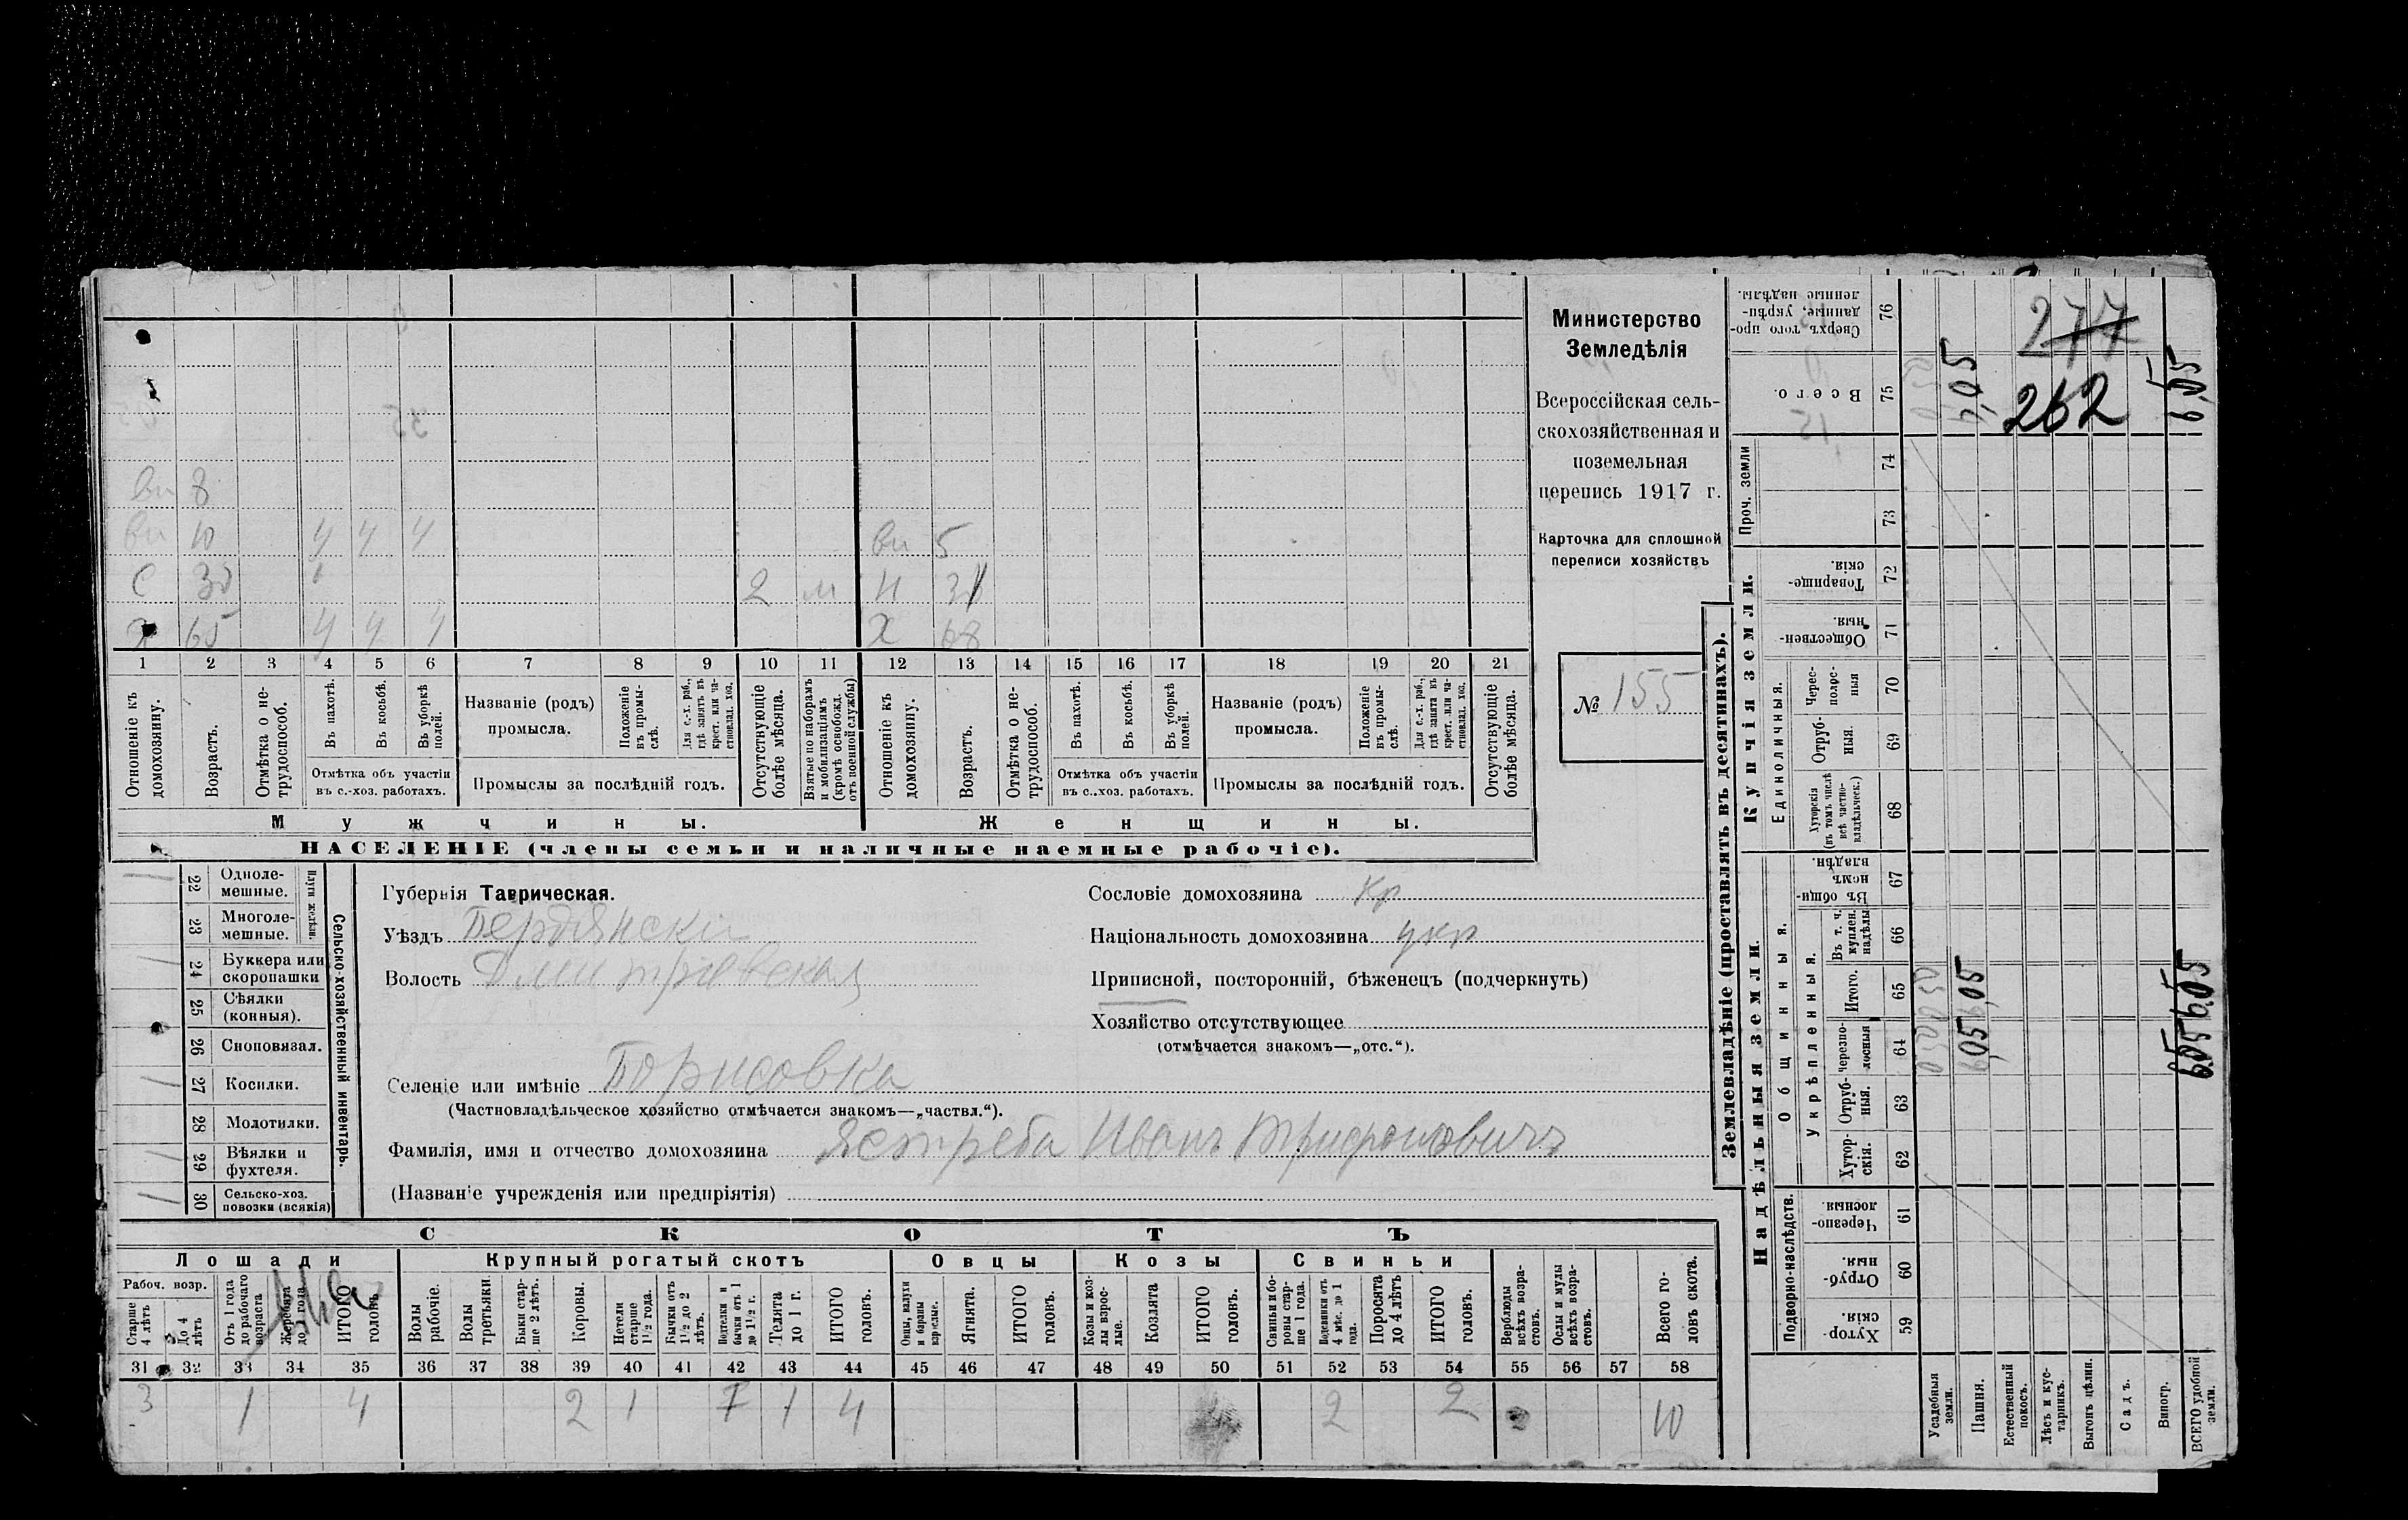 вн 8
вн 10 ч ч ч вн 5
с 30 2 м н 31
х 65 ч ч ч х 68
1 2 3 4 5 6 7 8 9 10 11 12 13 14 15 16 17 18 19 20 21
Отношеніе къ домохозяину.
Возрастъ.
Отмѣтка о не-
трудоспособ.
Въ пахотѣ.
Въ косьбѣ.
Въ уборкѣ полей.
Отмѣтка объ участіи
въ с.-хоз. работахъ.
Названіе (родъ)
промысла.
Положеніе въ промы-
слѣ.
Для с.-х. раб.,
гдѣ занятъ въ
крест. или ча-
стновлад. хоз.
Промыслы за послѣдній годъ.
Отсутствующіе
болѣе мѣсяца.
Взятые по наборамъ
и мобилизаціямъ
(кромѣ освобожд.
отъ военной службы)
Отношеніе къ
домохозяину.
Возрастъ.
Отмѣтка о не-
трудоспособ.
Въ пахотѣ.
Въ косьбѣ.
Въ уборкѣ
полей.
Отмѣтка объ участіи
въ с.-хоз. работахъ.
Названіе (родъ)
промысла.
Положеніе
въ промы-
слѣ.
Для с.-х. раб.,
гдѣ занята въ
крест. или ча-
стновлад. хоз.
Промыслы за послѣдній годъ.
Отсутствующіе
болѣе мѣсяца.
Мужчины.
Женщины.
НАСЕЛЕНІЕ (члены семьи и наличные наемные рабочіе).
Министерство
Земледѣлія
Всероссійская сель-
скохозяйственная и
поземельная
перепись 1917 г.
Карточка для сплошной
переписи хозяйствъ
№ 155
22 Одноле-
мешные.
23 Многоле-
мешные.
Плуги желѣзн.
24 Буккера или
скоропашки
25 Сѣялки
(конныя).
26 Сноповязал.
27 Косилки.
28 Молотилки.
29 Вѣялки и
фухтеля.
30 Сельско-хоз.
повозки (всякія)
Сельско-хозяйственный инвентарь.
Губернія Таврическая.
Уѣздъ Бердянскій
Волость Дмитревская
Сословіе домохозяина кр
Національность домохозяина укр
Приписной, посторонній, бѣженецъ (подчеркнуть)
Хозяйство отсутствующее
(отмѣчается знакомъ—„отс.“).
Селеніе или имѣніе Борисовка
(Частновладѣльческое хозяйство отмѣчается знакомъ—„частвл.“).
Фамилія, имя и отчество домохозяина Ястреба Иванъ Трифоновичъ
(Названіе учрежденія или предпріятія)
СКОТЪ
Лошади
Крупный рогатый скотъ
Овцы
Козы
Свиньи
Рабоч. возр.
Старше
4 лѣтъ
До 4
лѣтъ
Отъ 1 года
до рабочаго
возраста
Жеребята
до 1 года
ИТОГО
головъ.
Волы
рабочіе.
Волы
третьяки.
Быки стар-
ше 2 лѣтъ.
Коровы.
Нетели
старше
1½ года.
Бычки отъ
1½ до 2
лѣтъ.
Подтелки и
бычки отъ 1
до 1½ г.
Телята
до 1 г.
ИТОГО
головъ.
Овцы, валухи
и бараны
взрослые.
Ягнята.
ИТОГО
головъ.
Козы и коз-
лы взрос-
лые.
Козлята
ИТОГО
головъ.
Свиньи и бо-
ровы стар-
ше 1 года.
Подсвинки отъ
4 мѣс. до 1
года.
Поросята
до 4 лѣтъ
ИТОГО
головъ.
Верблюды
всѣхъ возра-
стовъ.
Ослы и мулы
всѣхъ возра-
стовъ.
Всего го-
ловъ скота.
31 32 33 34 35 36 37 38 39 40 41 42 43 44 45 46 47 48 49 50 51 52 53 54 55 56 57 58
3 1 4 2 1 1 4 2 2 10
Землевладѣніе (проставлять въ десятинахъ).
Купчія земли.
Надѣльныя земли.
Сверхъ того про-
данные, укрѣп-
ленные надѣлы.
76
277
Всего.
75
6,05
262
6,05
Проч. земли
74
73
Товарище-
скія.
72
Обществен-
ныя.
71
Единоличныя.
Черес-
полос-
ныя
70
Отруб-
ныя.
69
Хуторскія
(въ томъ числѣ
всѣ частно-
владѣльческ.)
68
Общинныя.
Въ общи-
номъ
владѣн.
67
Укрѣпленныя.
Въ т. ч.
куплен.
надѣлы
66
Итого.
65
6,05
6,05
Черезпо-
лосныя
64
6,05
6,05
Отруб-
ныя.
63
Хутор-
скія.
62
Подворно-наслѣдств.
Черезпо-
лосныя
61
Отруб-
ныя.
60
Хутор-
скія.
59
Усадебныя
земли.
Пашня.
Естественный
покосъ.
Лѣсъ и кус-
тарникъ.
Выгонъ цѣлин.
Садъ.
Виногр.
ВСЕГО удобной
земли.